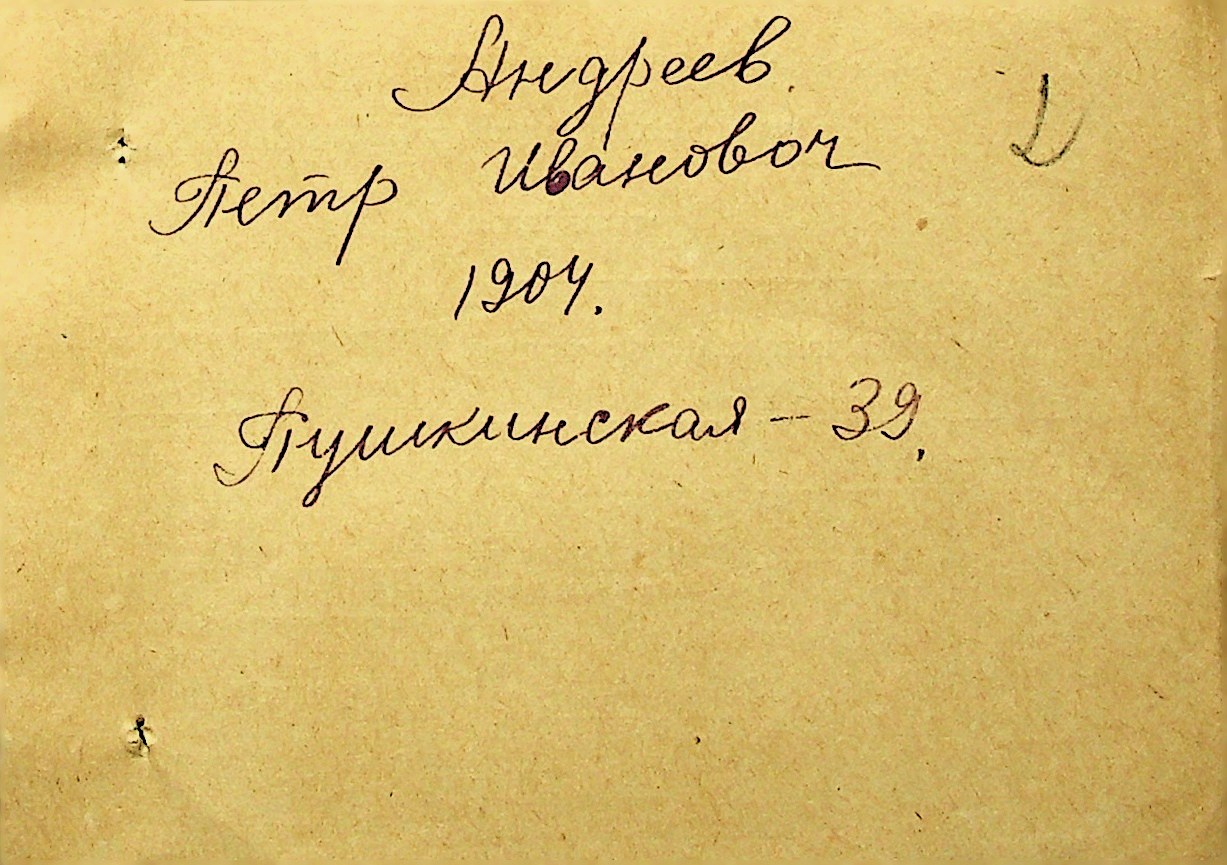 Андреев
Петр Ивановоч
1904.
Пушкинская – 39.